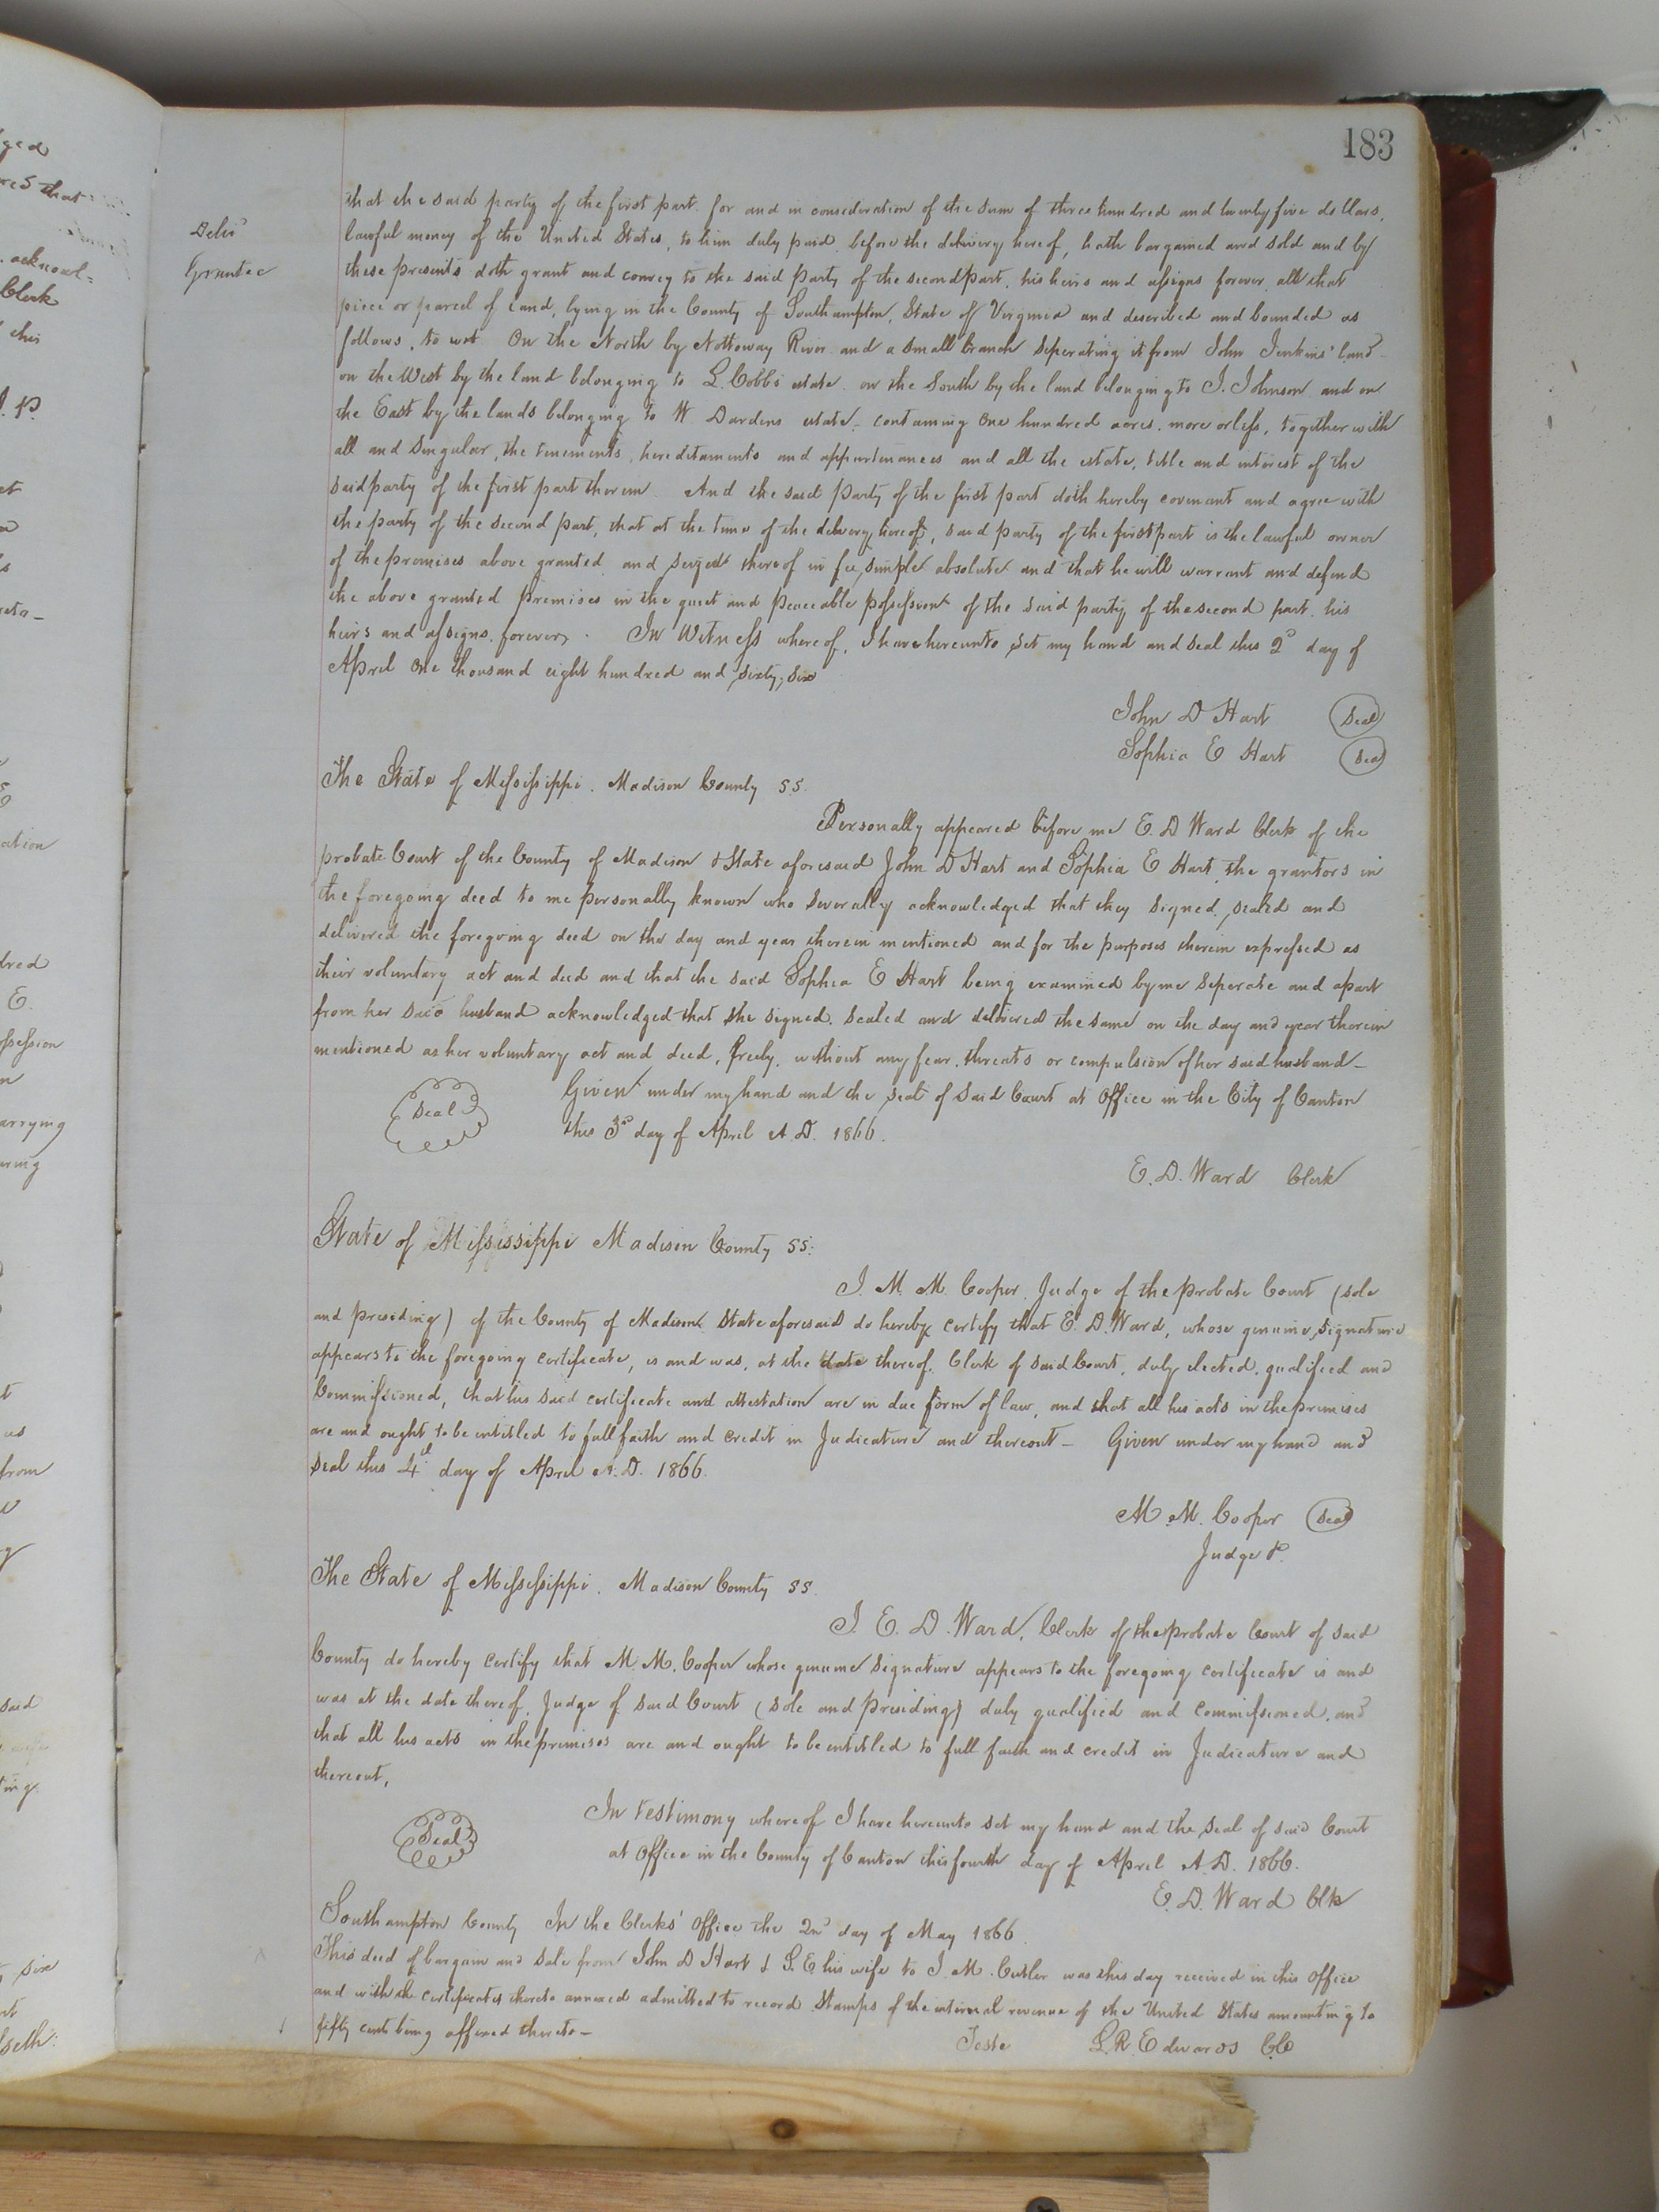 183
Deliv^d
Grantee
that the said party of the first part for and in consideration of the sum of three hundred and twenty five dollars,
lawful money of the United States, to him duly paid before the delivery hereof, hath bargained and sold and by
these presents doth grant and convey to the said Party of the second part, his heirs and assigns forever, all that
piece or parcel of Land, lying in the County of Southampton, State of Virginia and described and bounded as
follows, to wit On the North by Nottoway River and a small branch seperating it from John Jenkins' land
on the West by the land belonging to L. Cobbs estate on the South by the land belonging to J. Johnson and on
the East by the lands belonging to W Dardens estate, containing One hundred acres, more or less, together with
all and singular, the tenements, hereditaments and appurtenances and all the estate, title and interest of the
said party of the first part therein And the said party of the first part doth hereby covenant and agree with
the party of the second part, that at the time of the delivery hereof, said party of the first part is the lawful owner
of the premises above granted and seized thereof in fee, simple absolute and that he will warrant and defend
the above granted premises in the quiet and peaceable possession of the said party of the second part, his
heirs and assigns, forever, In Witness whereof, I have hereunto set my hand and seal this 2^d day of
April One thousand eight hundred and sixty, six
John D Hart Seal
Sophia E Hart Seal
The State of Mississippi. Madison County SS.
Personally appeared before me E. D Ward Clerk of the
probate Court of the County of Madison & State aforesaid John D Hart and Sophia E Hart, the grantors in
the foregoing deed to me personally known who severally acknowledged that they signed, sealed and
delivered the foregoing deed on the day and year therein mentioned and for the purposes therein expressed as
their voluntary act and deed and that the said Sophia E Hart being examined by me seperate and apart
from her said husband acknowledged that she signed. sealed and delivered the same on the day and year therein
mentioned as her voluntary act and deed, freely, without any fear, threats or compulsion of her said husband—
Given under my hand and the seal of said Court at Office in the City of Canton
Seal
this 3^d day of April A.D. 1866.
E. D. Ward Clerk
State of Mississippi Madison County SS:
I. M. M. Cooper, Judge of the probate Court (sole
and presiding) of the County of Madison State aforesaid do hereby certify that E. D. Ward, whose genuine signature
appears to the foregoing certificate, is and was, at the date thereof. Clerk of said Court, duly elected, qualified and
Commissioned, that his said certificate and attestation are in due form of law, and that all his acts in the premises
are and ought to be entitled to full faith and credit in Judicature and thereout— Given under my hand and
seal this 4^th day of April A.D. 1866.
M. M. Cooper Seal
Judge P.
The State of Mississippi. Madison County SS
I. E. D. Ward, Clerk of the probate Court of said
County do hereby certify that M. M. Cooper whose genuine signature appears to the foregoing certificate is and
was at the date thereof, Judge of said Court (sole and presiding) duly qualified and commissioned, and
that all his acts in the premises are and ought to be entitled to full faith and credit in Judicature and
thereout,
In testimony whereof I have hereunto set my hand and the seal of said Court
Seal
at Office in the County of Canton this fourth day of April A.D. 1866.
E. D. Ward Clk
Southampton County In the Clerks' Office the 2nd day of May 1866.
This deed of bargain and sale from John D Hart & S. E his wife to J. M. Cutler was this day received in this Office
and with the certificates thereto annexed admitted to record Stamps of the internal revenue of the United States amounting to
fifty cents being affixed thereto—
Teste L. R. Edwards CC